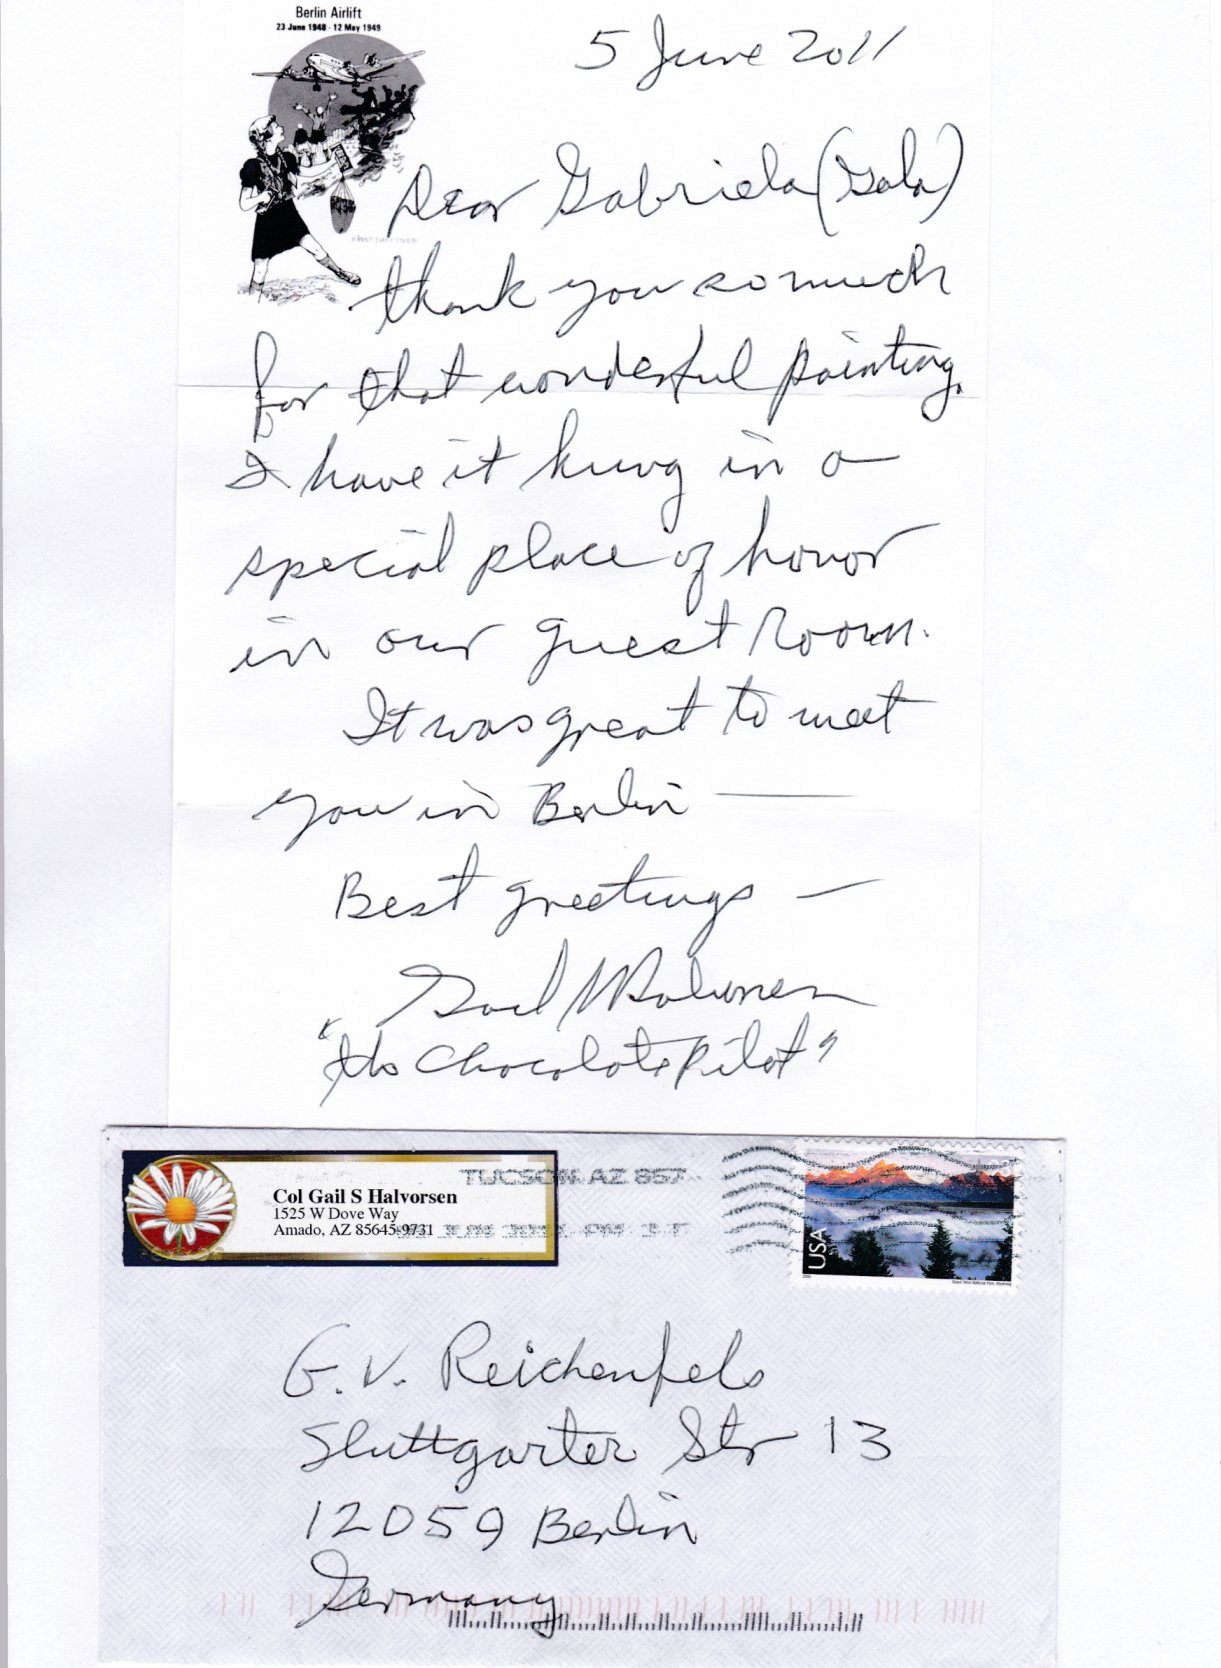 Berlin Airlift
23 June 1948 - 12 May 1949
5 June 2011
FIRST DAY COVER
Dear Gabriela (Gala)
thank you so much
for that wonderful painting.
I have it hung in a
special place of honor
in our guest room.
It was great to meet
you in Berlin —
Best greetings —
Gail Halvorsen
"the Chocolate Pilot"
TUCSON AZ 857
Col Gail S Halvorsen
1525 W Dove Way
Amado, AZ 85645-9731
USA
G. V. Reichenfels
Stuttgarter Str 13
12059 Berlin
Germany